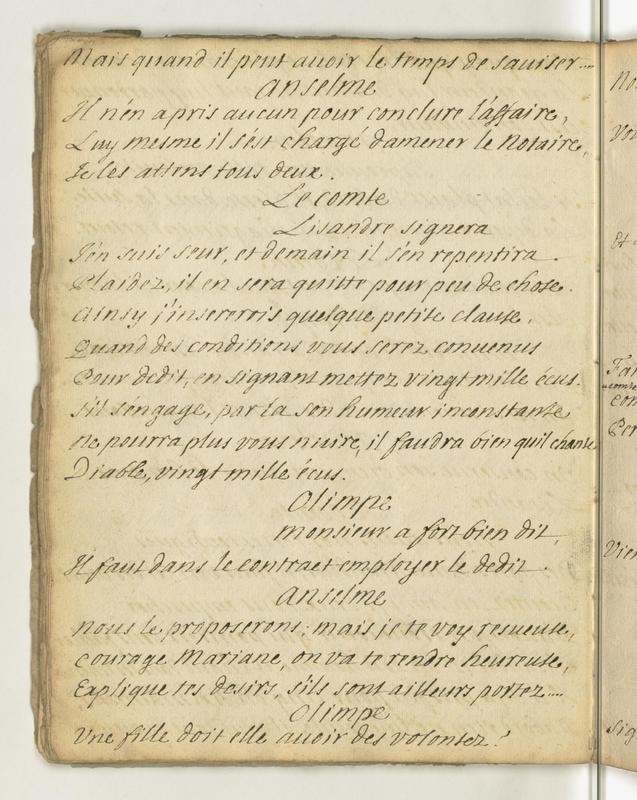 Mais quand il peut auoir le temps de sauiser....
Anselme
Il n'en a pris aucun pour conclure l'affaire,
Luy mesme il s'est chargé damener le Notaire,
Je les attens tous deux.
Le comte
Lisandre signera
J'en suis seur, et demain il s'en repentira.
Plaidez, il en sera quitte pour peu de chose.
Ainsy j'insererois quelque petite clause,
Quand des conditions vous serez conuenus
Pour dedit, en signant mettez vingt mille écus.
S'il s'engage, par la son humeur inconstante
Ne pourra plus vous nuire, il faudra bien quil chante
Diable, vingt mille écus.
Olimpe
Monsieur a fort bien dit,
Il faut dans le contract employer le dedit.
Anselme
Nous le proposerons; mais je te voy resueuse,
Courage Mariane, on va te rendre heureuse,
Explique tes desirs, s'ils sont ailleurs portez....
Olimpe
Vne fille doit elle auoir des volontez?
Vou
Et
Per
Vien